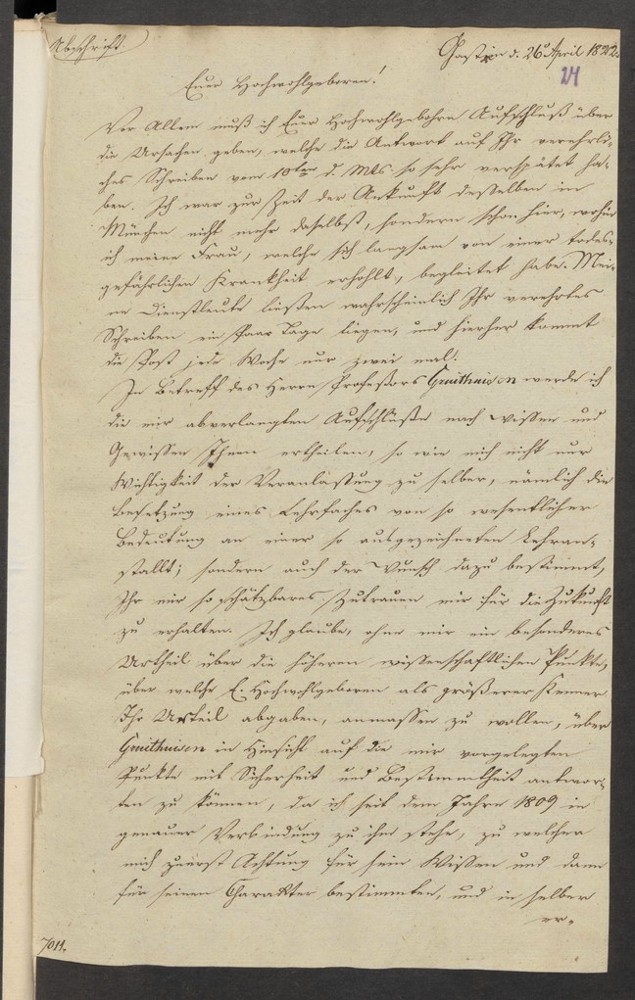 Abschrift
Gastein d. 26t April 1822.
24
Euer Hochwohlgeboren!
Vor Allem muß ich Euer Hochwohlgebohrn Aufschluß über
die Ursachen geben, welche die Antwort auf Ihr verehrli-
ches Schreiben vom 10ten d. Mts. so sehr verspätet ha-
ben. Ich war zur Zeit der Ankunft desselben in
München nicht mehr daselbst, sondern schon hier, wohin
ich meine Frau, welche sich langsam von einer todes-
gefährlichen Krankheit erhohlt, begleitet habe. Mei-
ne Dienstleute ließen wahrscheinlich Ihr verehrtes
Schreiben ein Paar Tage liegen, und hierher kommt
die Post jede Woche nur zwei mal.
In Betreff des Herrn Professors Gruithuisen werde ich
die mir abverlangten Aufschlüsse nach Wissen und
Gewissen Ihnen ertheilen, so wie mich nicht nur
Wichtigkeit der Veranlassung zu selber, nämlich die
Besetzung eines Lehrfaches von so wesentlicher
Bedeutung an einer so ausgezeichneten Lehran-
stallt; sondern auch der Wunsch dazu bestimmt,
Ihr mir so schätzbares Zutrauen mir für die Zukunft
zu erhalten. Ich glaube, ohne mir ein besonderes
Urtheil über die höheren wissenschaftlichen Punkte,
über welche E. Hochwohlgeboren als größerer Kenner
Ihr Urteil abgaben, anmassen zu wollen, über
Gruithuisen in Hinsicht auf die mir vorgelegten
Punkte mit Sicherheit und Bestimmtheit antwor-
ten zu können, da ich seit dem Jahre 1809 in
genauer Verbindung zu ihm stehe, zu welcher
mich zuerst Achtung für sein Wissen und dann
für seinen Charakter bestimmten, und in selber
er-
7011.